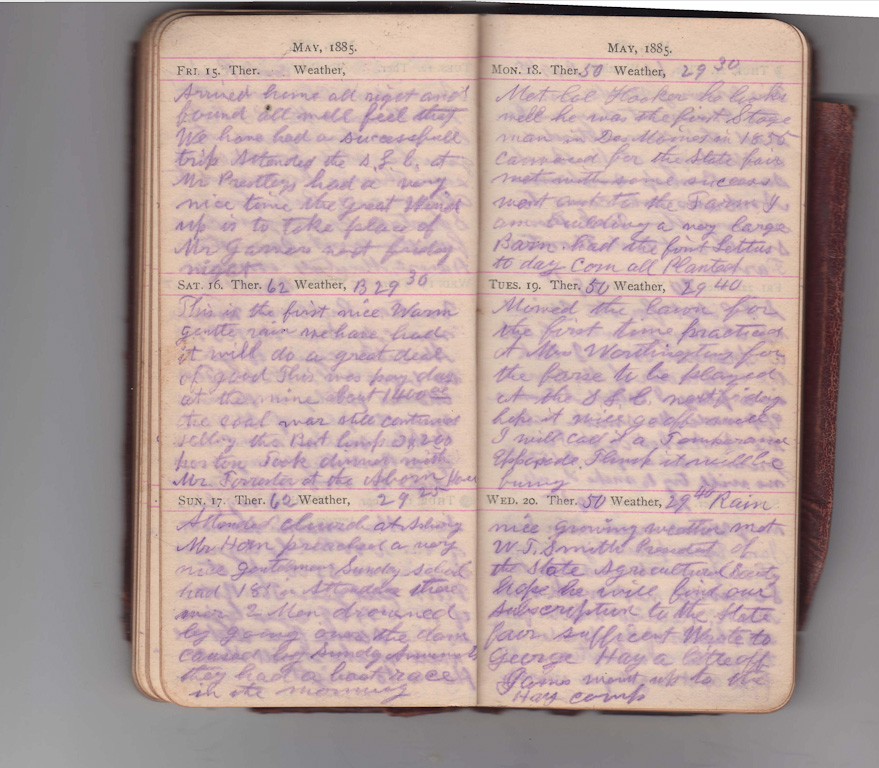 MAY, 1885.
FRI. 15. Ther. Weather,
Arrived home all right and
found all well feel that
We have had a successfull
trip Attended the S.F.C. at
Mr Prestleys had a very
nice time the Great Wind
up is to take place at
Mr Garvers next friday
night
SAT. 16. Ther. 62 Weather, B 29 30
This is the first nice Warm
gentle rain we have had
it will do a great deal
of good This was pay day
at the mine about
the coal war still continues
selling the Best lump
per ton Took dinner with
Mr. Forrester at the Aborn House
SUN. 17. Ther. 60 Weather, 29 25
Attended church at Asbury
Mr Horn preached a very
nice gentleman Sunday school
had 185 in Attendance there
were 2 Men drowned
by going over the dam
caused by Sunday
they had a boat race
in the morning
MAY, 1885.
MON. 18. Ther. 50 Weather, 29 30
Met Col Hooker he looks
well he was the first Stage
man in Des Moines in 1855
canvased for the State fair
met with some success
went out to the Farm I
am building a very large
Barn had the first Lettus
to day Corn all Planted
TUES. 19. Ther. 50 Weather, 29 40
Mowed the lawn for
the first time practiced
at Mrs Worthingtons for
the farse to be played
at the S.F.C. next friday
hope it will go off well
I will call it a Temperance
Think it will be
funny
WED. 20. Ther. 50 Weather, 29 40 Rain
nice growing weather met
W.T. Smith President of
the State Agricultural Society
Hope he will find our
subscription to the State
fair sufficent Wrote to
George Hay a
James went up to the
Hay camp